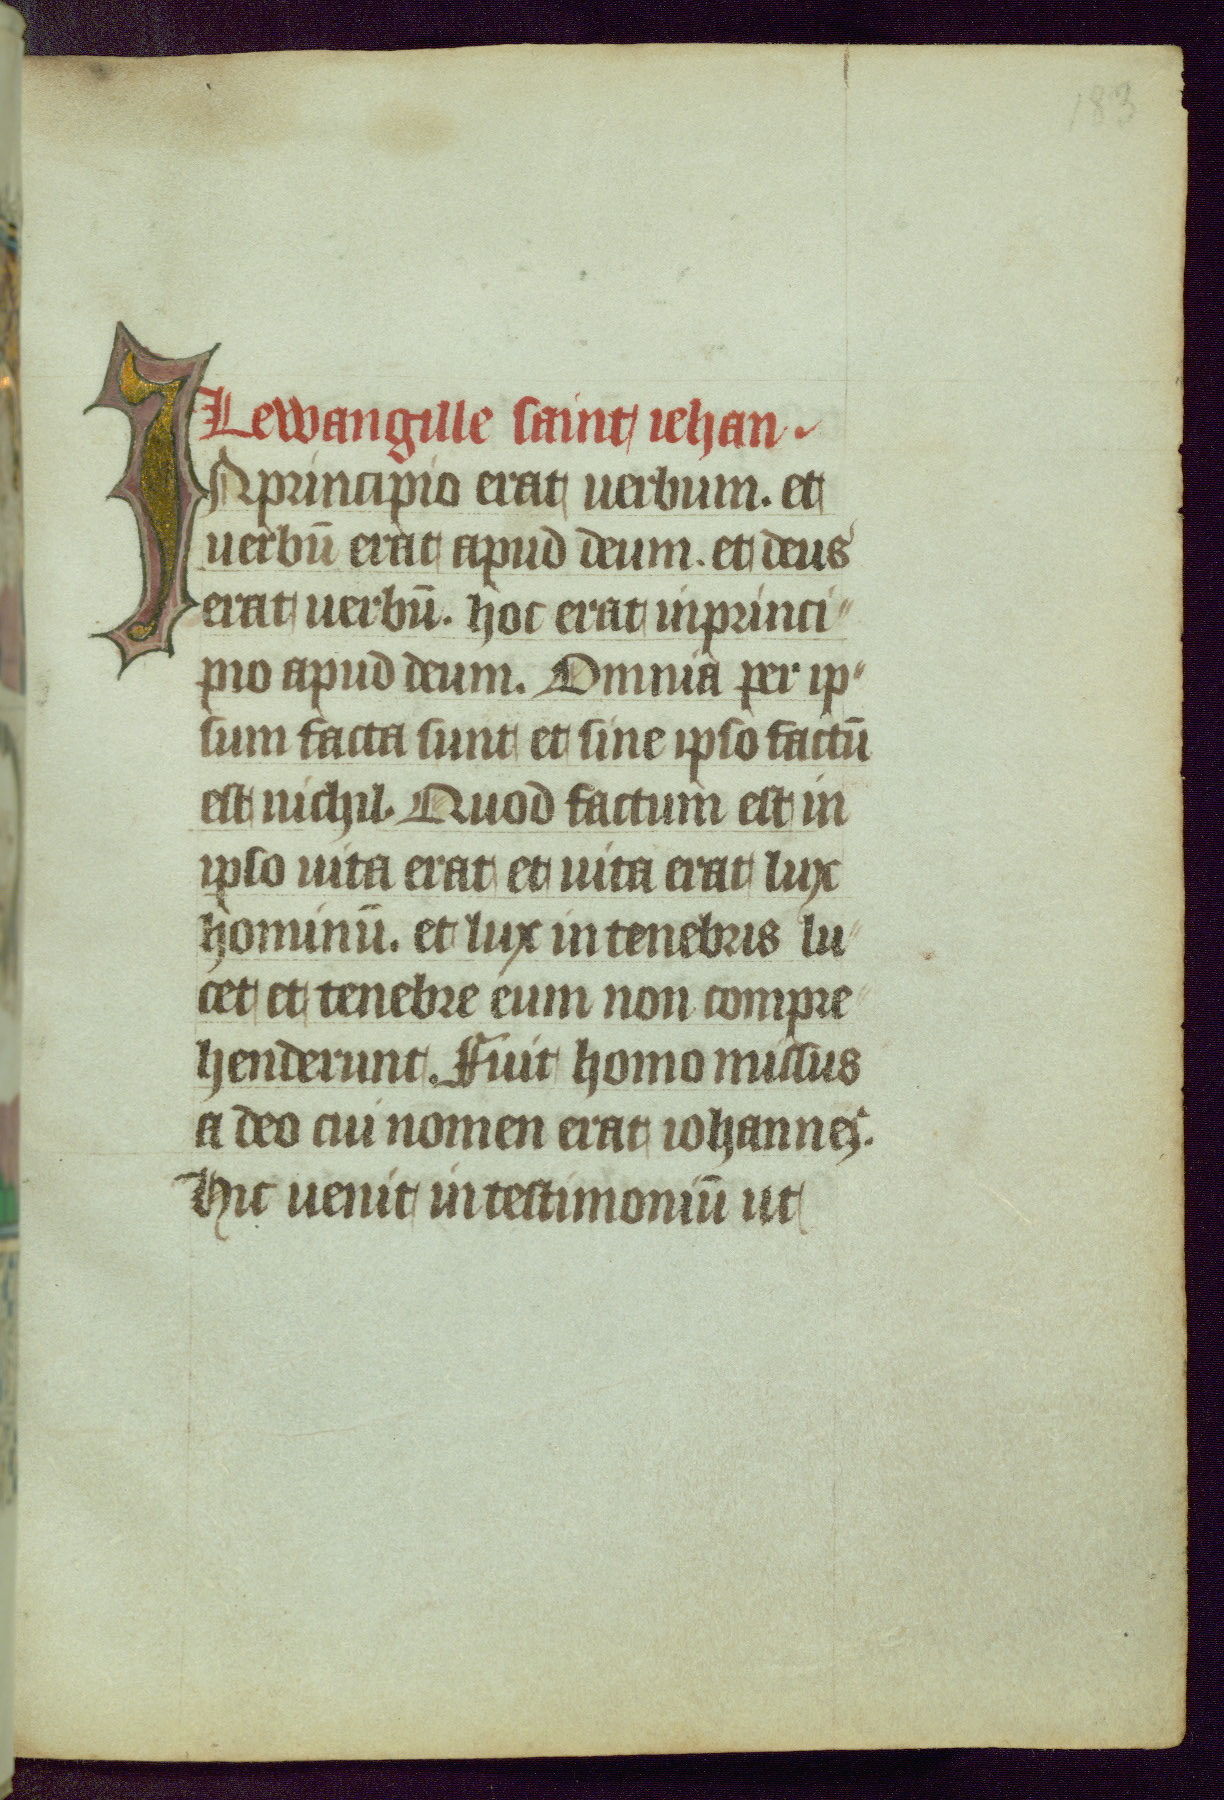 183
Lewangille saint iehan.
IN principio erat uerbum. et
uerbū erat apud deum. et deus
erat uerbū. hoc erat in princi-
pio apud deum. Omnia per ip-
sum facta sunt et sine ipso factū
est nichil. Quod factum est in
ipso uita erat et uita erat lux
hominū. et lux in tenebris lu-
cet et tenebre eum non compre-
henderunt. Fuit homo missus
a deo cui nomen erat iohannes.
Hic uenit in testimoniū ut